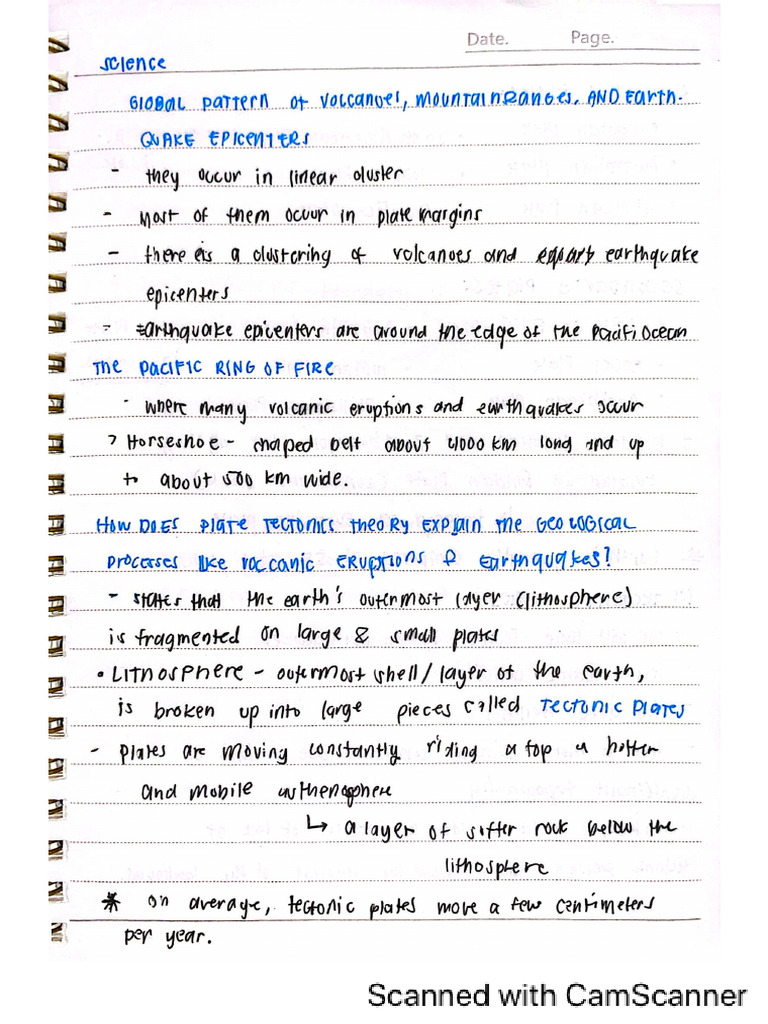 Date. Page.
Science
GLOBAL pattern of volcanoes, mountain Ranges, AND Earth-
QUAKE EPICENTERS
- they occur in linear cluster
- Most of them occur in plate margins
- there is a clustering of volcanoes and earthquake
epicenters
- Earthquake epicenters are around the edge of the Pacific Ocean
THE PACIFIC RING OF FIRE
- where many volcanic eruptions and earthquakes occur
> Horseshoe - shaped belt about 4000 km long and up
to about 500 km wide.
HOW DOES plate tectonics theory EXPLAIN the GEOLOGICAL
processes like volcanic ERuptions & Earthquakes?
- states that the earth's outermost layer (lithosphere)
is fragmented on large & small plates
• LITHOSPHERE - outermost shell / layer of the earth,
is broken up into large pieces called TECTONIC PLATES
- plates are moving constantly riding a top a hotter
and mobile asthenosphere
↳ a layer of softer rock below the
lithosphere
* on average, tectonic plates move a few centimeters
per year.
Scanned with CamScanner